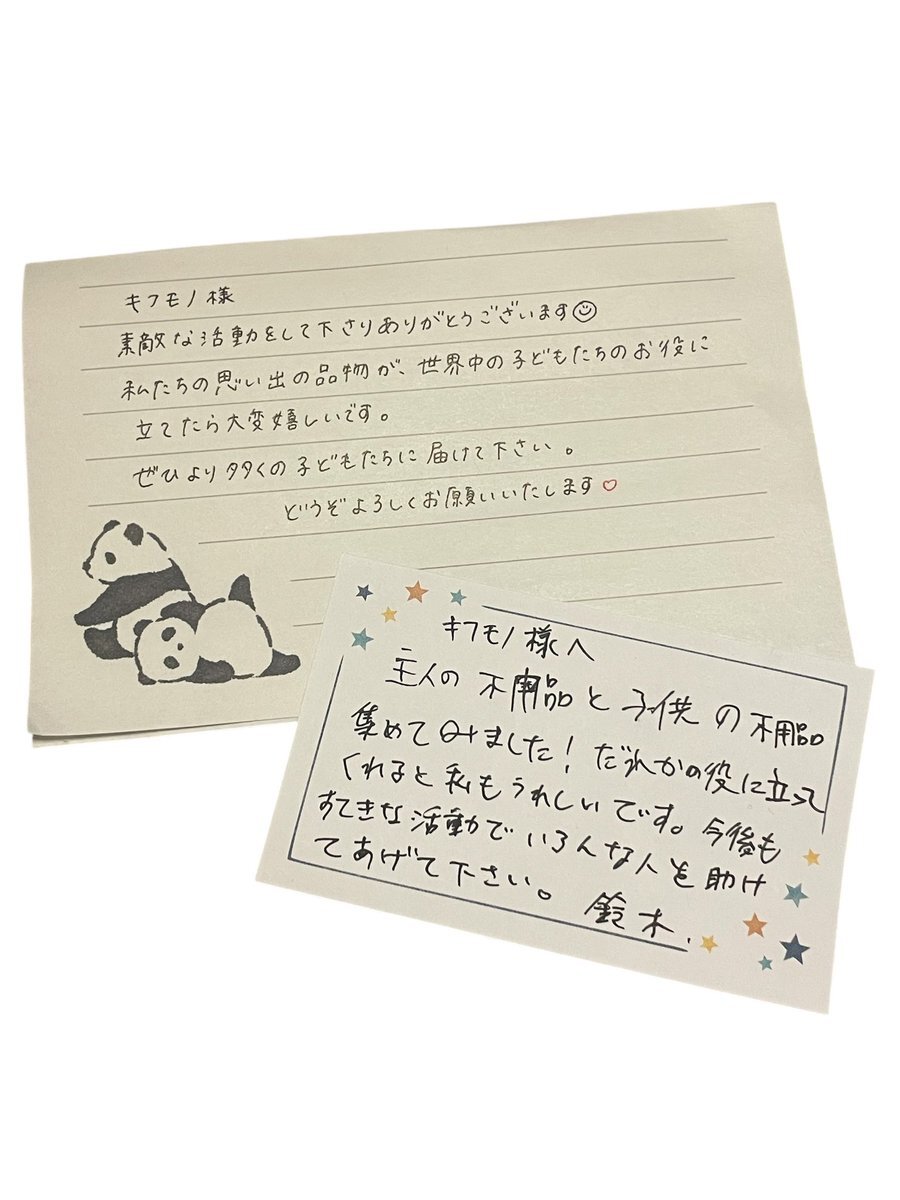 キフモノ様
素敵な活動をして下さりありがとうございます☺
私たちの思い出の品物が、世界中の子どもたちのお役に
立てたら大変嬉しいです。
ぜひより多くの子どもたちに届けて下さい。
どうぞよろしくお願いいたします♡
キフモノ様へ
主人の不用品と子供の不用品
集めてみました！だれかの役に立って
くれると私もうれしいです。今後も
すてきな活動でいろんな人を助け
てあげて下さい。 鈴木.